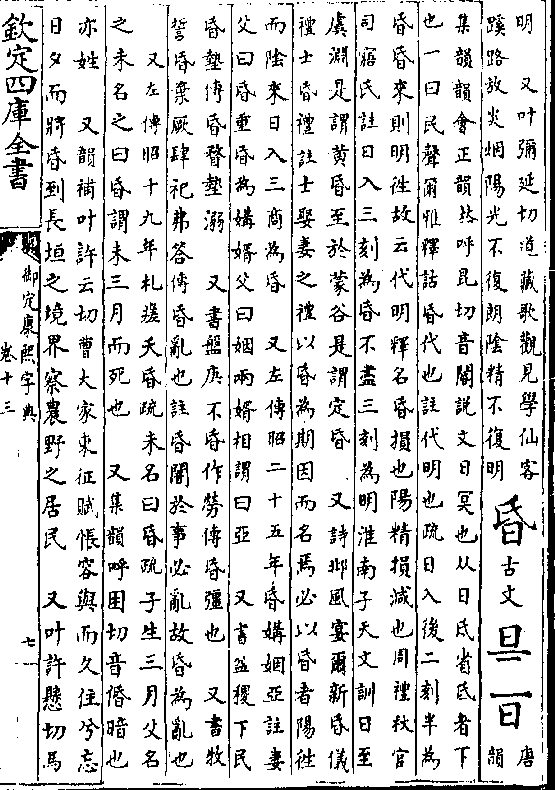 明　又叶彌延切道藏歌觀見學仙客
蹊路放炎烟陽光不復朗陰精不復明
昏古文
唐韻
集韻韻會正韻𠀤呼昆切音閽說文日冥也从日氐省氐者下
也一曰民聲爾雅釋詁昏代也註代明也疏日入後二刻半為
昏昏來則明往故云代明釋名昏損也陽精損減也周禮秋官
司寤氏註日入三刻為昏不盡三刻為明淮南子天文訓日至
虞淵是謂黄昏至於蒙谷是謂定昏　又詩邶風宴爾新昏儀
禮士昏禮註士娶妻之禮以昏為期因而名焉必以昏者陽往
而陰來日入三商為昏　又左傳昭二十五年昏媾姻亞註妻
父曰昏重昏為媾婿父曰姻兩婿相謂曰亞　又書益稷下民
昏墊傳昏瞀墊溺　又書盤庚不昏作勞傳昏彊也　又書牧
誓昏棄厥肆祀弗答傳昏亂也註昏闇於事必亂故昏為亂也
又左傳昭十九年札瘥夭昏疏未名曰昏疏子生三月父名
之未名之曰昏謂未三月而死也　又集韻呼困切音惛暗也
亦姓　又韻補叶許云切曹大家東征賦悵容與而久住兮忘
日夕而將昏到長垣之境界察農野之居民　又叶許懸切馬
欽定四庫全書
御定康熙字典
卷十三
七